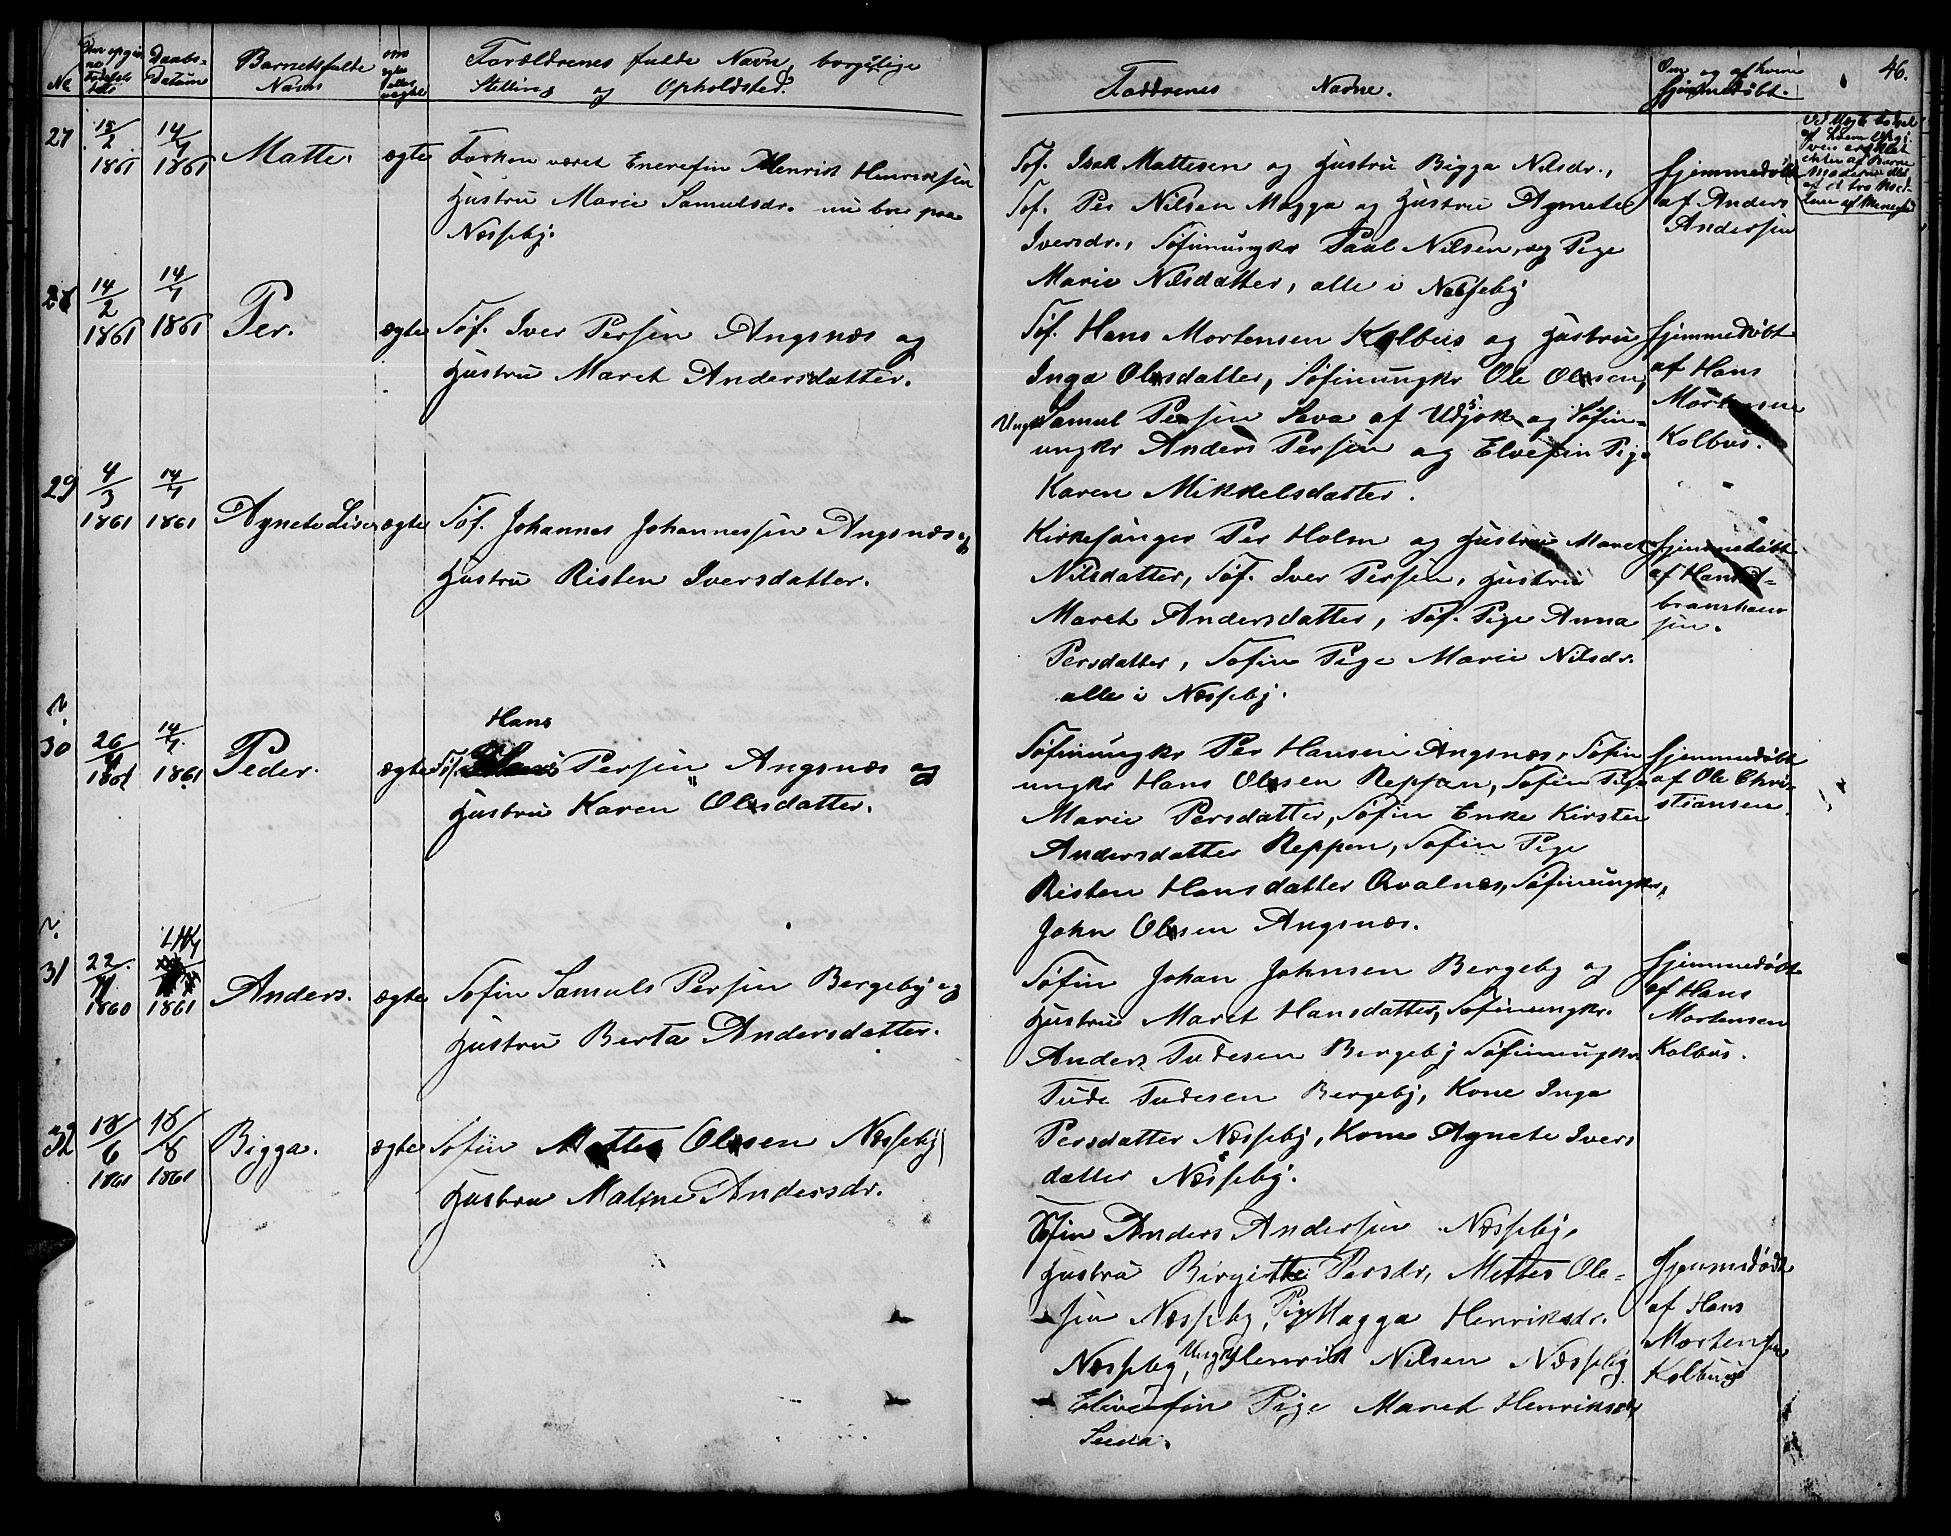 46.
No
Den opgivne Fødselsdato
Daabs-Datum
Barnets fulde Navn
om ægte eller uægte
Forældrenes fulde Navn, borgerlige Stilling og Opholdsted.
Faddrenes Navne.
Om og af hvem hjemmedøbt.
27
15/2 1861
14/7 1861
Matte.
ægte
Forhen været Enerefin Henrik Henriksen
Hustru Marie Samulsdr. nu boe paa
Næsseby.
Søf. Isak Mattesen og Hustru Bigga Nilsdr.,
Søf. Per Nilsen Magga og Hustru Agnete
Iversdr., Søfinungkr Paul Nilsen, og Pige
Marie Nilsdatter, alle i Næsseby
Hjemmedøbt
af Anders
Andersen
28
14/2 1861
14/7 1861
Per.
ægte
Søf. Iver Persen Angsnæs og
Hustru Maret Andersdatter.
Søf. Hans Mortensen Kolbus og Hustru
Inga Olsdatter, Søfinungkr Ole Olsen,
Ungk Samul Persen Sava af Udsjok og Søfin-
ungkr Anders Persen og Elvefin Pige
Karen Mikkelsdatter.
Hjemmedøbt
af Hans
Mortensen
Kolbus.
29
4/3 1861
14/7 1861
Agnete Lisa
ægte
Søf. Johannes Johannessen Angsnæs og
Hustru Risten Iversdatter.
Kirkesanger Per Holm og Hustru Maret
Nilsdatter, Søf. Iver Persen, Hustru
Maret Andersdatter, Søf. Pige Anna
Persdatter, Søfin Pige Marie Nilsdr.
alle i Næsseby.
Hjemmedøbt
30
26/4 1861
14/7 1861
Peder.
ægte
Hans
Søf. Persen Angsnæs og
Hustru Karen Olsdatter.
Søfinungkr Per Hansen Angsnæs, Søfin
ungkr Hans Olsen Reppen, Søfin Pige
Marie Persdatter, Søfin Enke Kirsten
Andersdatter Reppen, Søfin Pige
Risten Hansdatter Qvalnæs, Søfinungkr,
John Olsen Angsnæs.
Hjemmedøbt
af Ole Chri-
stiansen
31
22/11 1860
14/7 1861
Anders.
ægte
Søfin Samuls Persen Bergeby og
Hustru Berta Andersdatter.
Søfin Johan Johnsen Bergeby og
Hustru Maret Hansdatter, Søfinungkr.
Anders Tudesen Bergeby Søfinungkr
Tude Tudesen Bergeby, Kone Inga
Persdatter Næsseby, Kone Agnete Ivers
datter Næsseby.
Hjemmedøbt
af Hans
Mortensen
Kolbus.
32
18/6 1861
18/8 1861
Bigga.
ægte
Søfin Mattes Olsen Næsseby
Hustru Maline Andersdr.
Søfin Anders Andersen Næsseby,
Hustru Birgitte Persdr, Mettes Ole-
sen Næsseby, Pige Magga Henriksdr.
Næsseby, Ungk Henrik Nilsen Næsseby
Elvefin Pige Maret Henriksdr
Hjemmedøbt
af Hans
Mortensen
Kolbus